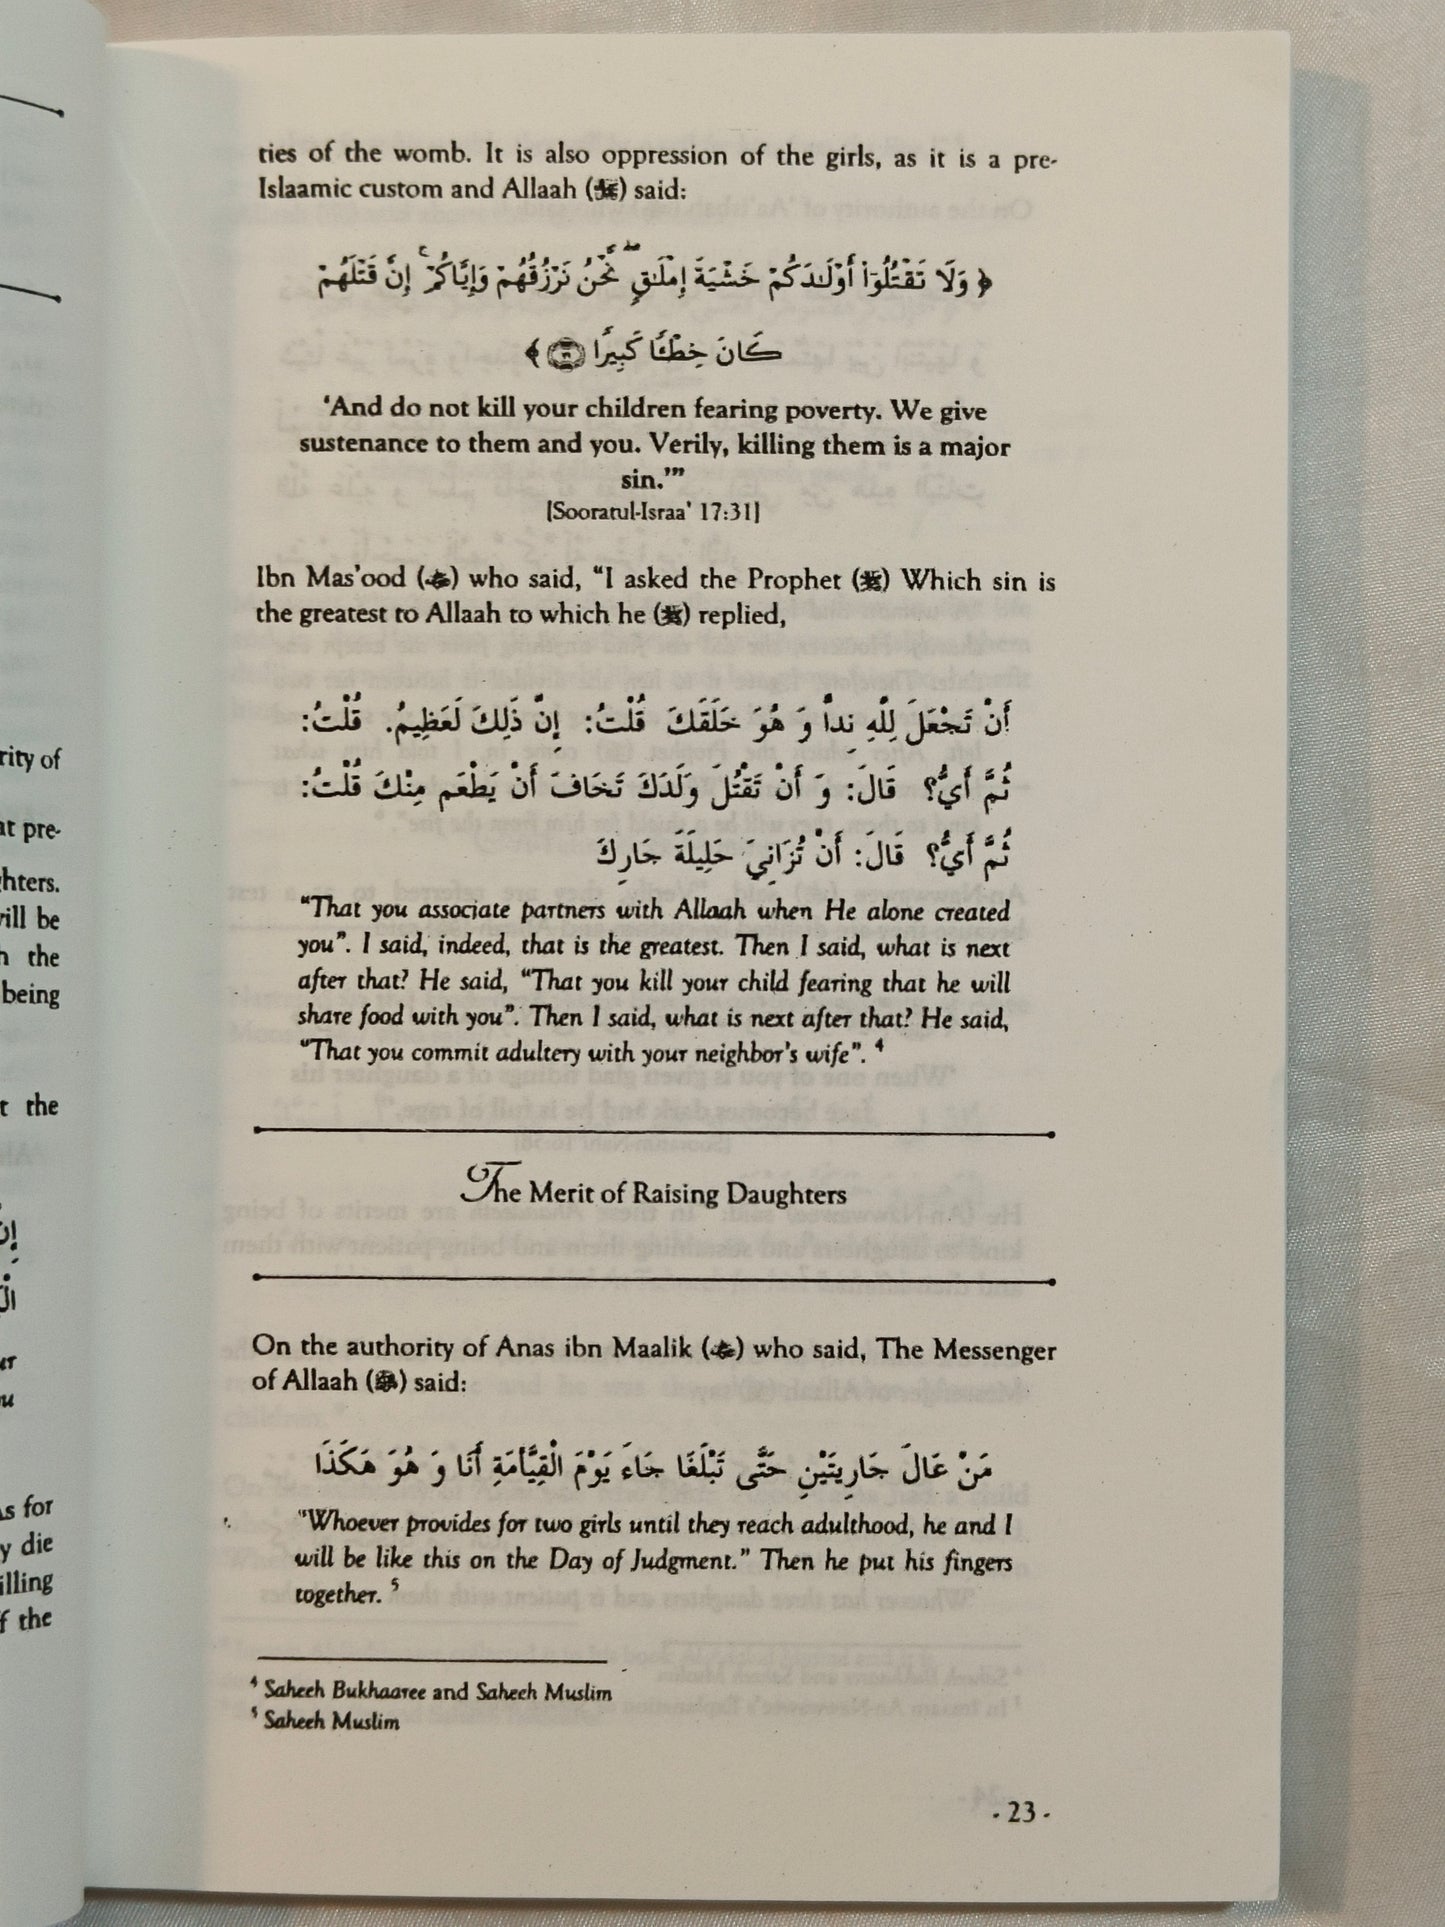 ties of the womb. It is also oppression of the girls, as it is a pre-
Islaamic custom and Allaah (ﷻ) said:
﴿ وَلَا تَقْتُلُوٓا۟ أَوْلَـٰدَكُمْ خَشْيَةَ إِمْلَـٰقٍ ۖ نَّحْنُ نَرْزُقُهُمْ وَإِيَّاكُمْ ۚ إِنَّ قَتْلَهُمْ
كَانَ خِطْـًٔا كَبِيرًا ﴾
‘And do not kill your children fearing poverty. We give
sustenance to them and you. Verily, killing them is a major
sin.’”
[Sooratul-Israa’ 17:31]
Ibn Mas’ood () who said, “I asked the Prophet (ﷺ) Which sin is
the greatest to Allaah to which he (ﷺ) replied,
أَنْ تَجْعَلَ لِلَّهِ نِداًّ وَ هُوَ خَلَقَكَ قُلْتُ: إِنَّ ذَلِكَ لَعَظِيمُ. قُلْتُ:
ثُمَّ أَيُّ؟ قَالَ: وَ أَنْ تَقْتُلَ وَلَدَكَ تَخَافَ أَنْ يَطْعَم مِنْكَ قُلْتُ:
ثُمَّ أَيُّ؟ قَالَ: أَنْ تُزَانِيَ حَلِيلَةَ جَارِكَ
“That you associate partners with Allaah when He alone created
you”. I said, indeed, that is the greatest. Then I said, what is next
after that? He said, “That you kill your child fearing that he will
share food with you”. Then I said, what is next after that? He said,
“That you commit adultery with your neighbor’s wife”. 4
The Merit of Raising Daughters
On the authority of Anas ibn Maalik () who said, The Messenger
of Allaah (ﷺ) said:
مَنْ عَالَ جَارِيَتَيْنِ حَتَّى تَبْلَغَا جَاءَ يَوْمَ الْقِيَّامَةِ أَنَا وَ هُوَ هَكَذَا
"Whoever provides for two girls until they reach adulthood, he and I
will be like this on the Day of Judgment.” Then he put his fingers
together. 5
4 Saheeh Bukhaaree and Saheeh Muslim
5 Saheeh Muslim
- 23 -